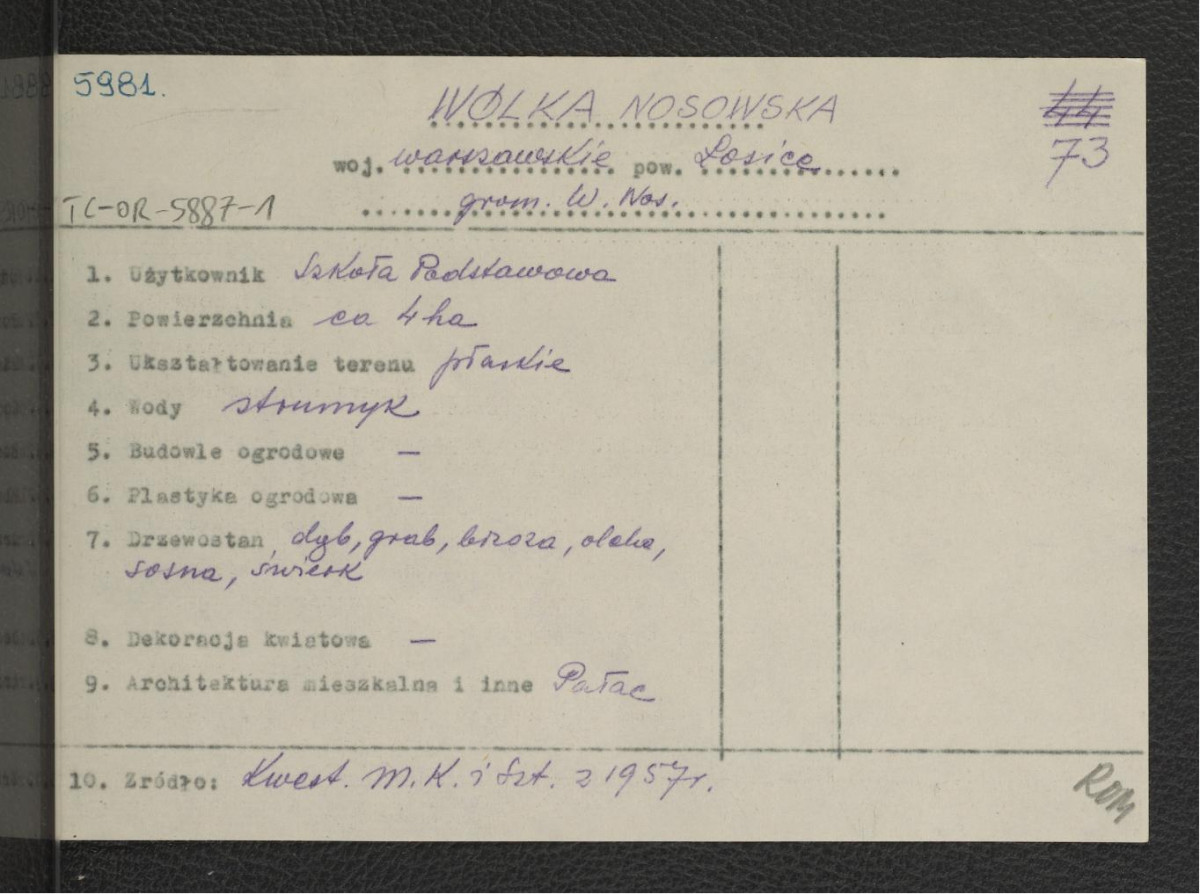 5981.
WÓLKA NOSOWSKA
44
woj. warszawskie pow. Łosice
73
TC-OR-5887-1
grom. W. Nos.
1. Użytkownik Szkoła Podstawowa
2. Powierzchnia ca 4 ha
3. Ukształtowanie terenu płaskie
4. Wody strumyk
5. Budowle ogrodowe —
6. Plastyka ogrodowa —
7. Drzewostan dąb, grab, brzoza, olcha,
sosna, świerk
8. Dekoracja kwiatowa —
9. Architektura mieszkalna i inne Pałac
10. Zródło: Kwest. M.K. i Szt. z 1957r.
ROM